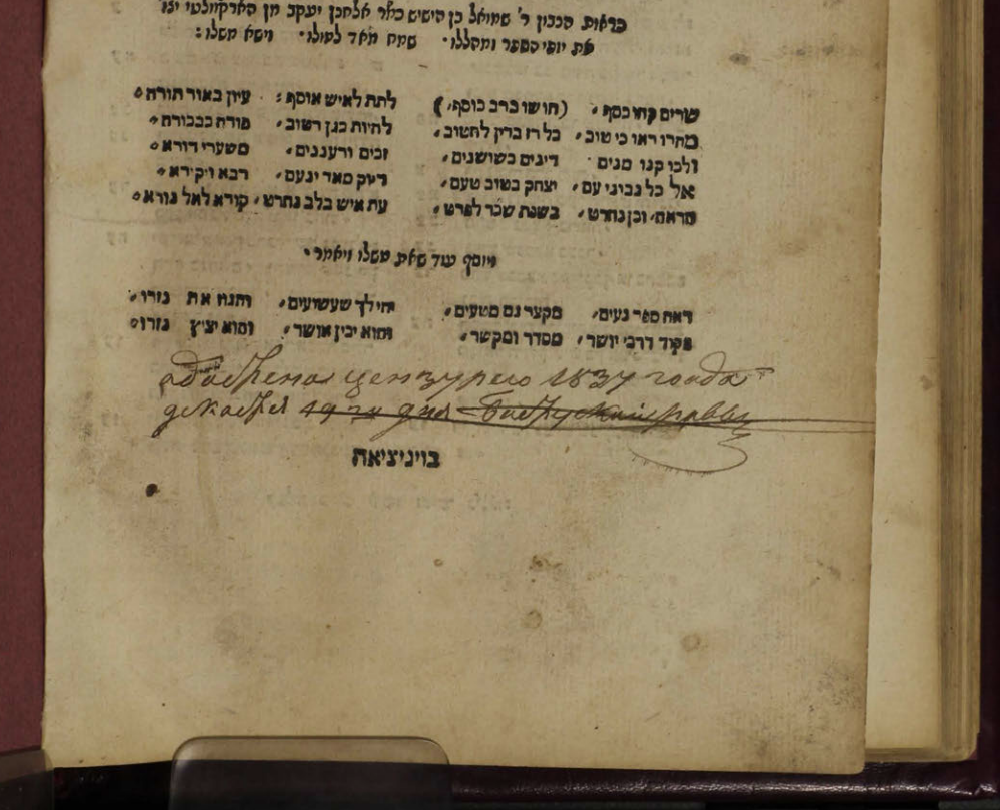 כראות הנבון ר' שמואל בן הישיש כמ"ר אלחנן יעקב מן הארקוולטי יצו'
את יופי הספר ומהללו · שמח מאד לפולו · וישא משלו :
שרים קחו כסף, (חושו ברב כוסף,) לתת לאיש אוסף : עיון באור תורה
מהרו ראו כי טוב, כל רז ברין לחטוב, להיות כגן רטוב, פורח כבכורה
ולכו קנו מנים דינים כשושנים, זכים ורעננים, משערי דורא
אל כל נבוני עם, יצחק בטוב טעם, דיוק מאד ינעם, רבא ויקירא
הראה, וכן נחרט, בשנת שכר לפרט, עת איש בלב נחרט, קורא לאל נורא
ויוסף עוד שאת משלו ויאמר ·
ראה ספר נעים, מקצר גם מטעים, הילך שעשועים, והנה את נזרו
פקוד דרכי יושר, מסדר ומקשר, והוא יכין אושר, והוא יציץ נזרו
цензурею 1837 года
декабря 19 дня
בויניציאה